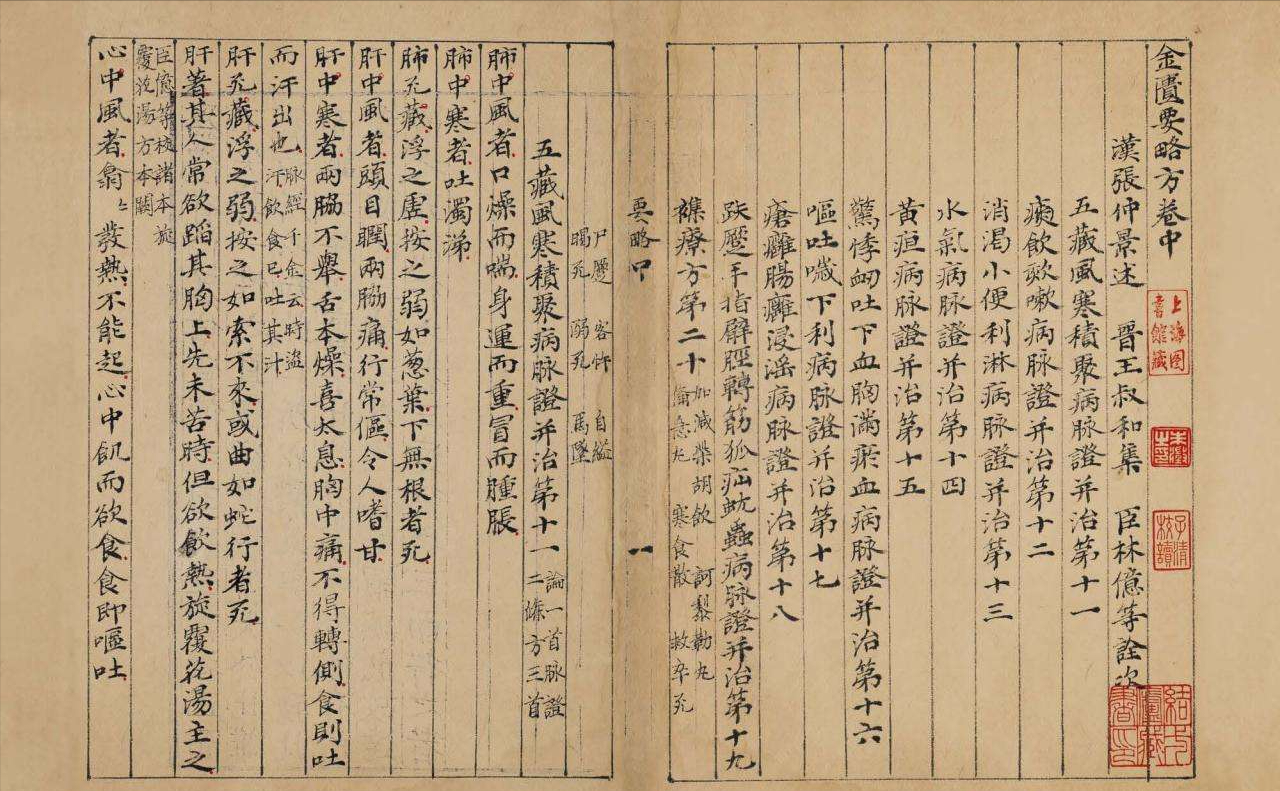 金匱要略方卷中
漢張仲景述　晉王叔和集　臣林億等詮次
五藏風寒積聚病脉證并治第十一
痰飲欬嗽病脉證并治第十二
消渴小便利淋病脉證并治第十三
水氣病脉證并治第十四
黄疸病脉證并治第十五
驚悸衂吐下血胸滿瘀血病脉證并治第十六
嘔吐噦下利病脉證并治第十七
瘡癰腸癰浸淫病脉證并治第十八
趺蹷手指臂脛轉筋狐疝蚘蟲病脉證并治第十九
襍療方第二十
加減柴胡飲　訶黎勒丸
備急丸　寒食散　救卒死
要略中　一
尸蹷　客忤　自縊
暍死　溺死　馬墜
五藏風寒積聚病脉證并治第十一
論一首脉證
二條方三首
肺中風者口燥而喘身運而重冒而腫脹
肺中寒者吐濁涕
肺死藏浮之虚按之弱如葱葉下無根者死
肝中風者頭目瞤兩脇痛行常傴令人嗜甘
肝中寒者兩脇不舉舌本燥喜太息胸中痛不得轉側食則吐
而汗出也
脉經千金云時盗
汗飲食已吐其汁
肝死藏浮之弱按之如索不來或曲如蛇行者死
肝著其人常欲蹈其胸上先未苦時但欲飲熱旋覆花湯主之
臣億等校諸本旋
覆花湯方本闕
心中風者翕〻發熱不能起心中飢而欲食食即嘔吐
上海图書館藏